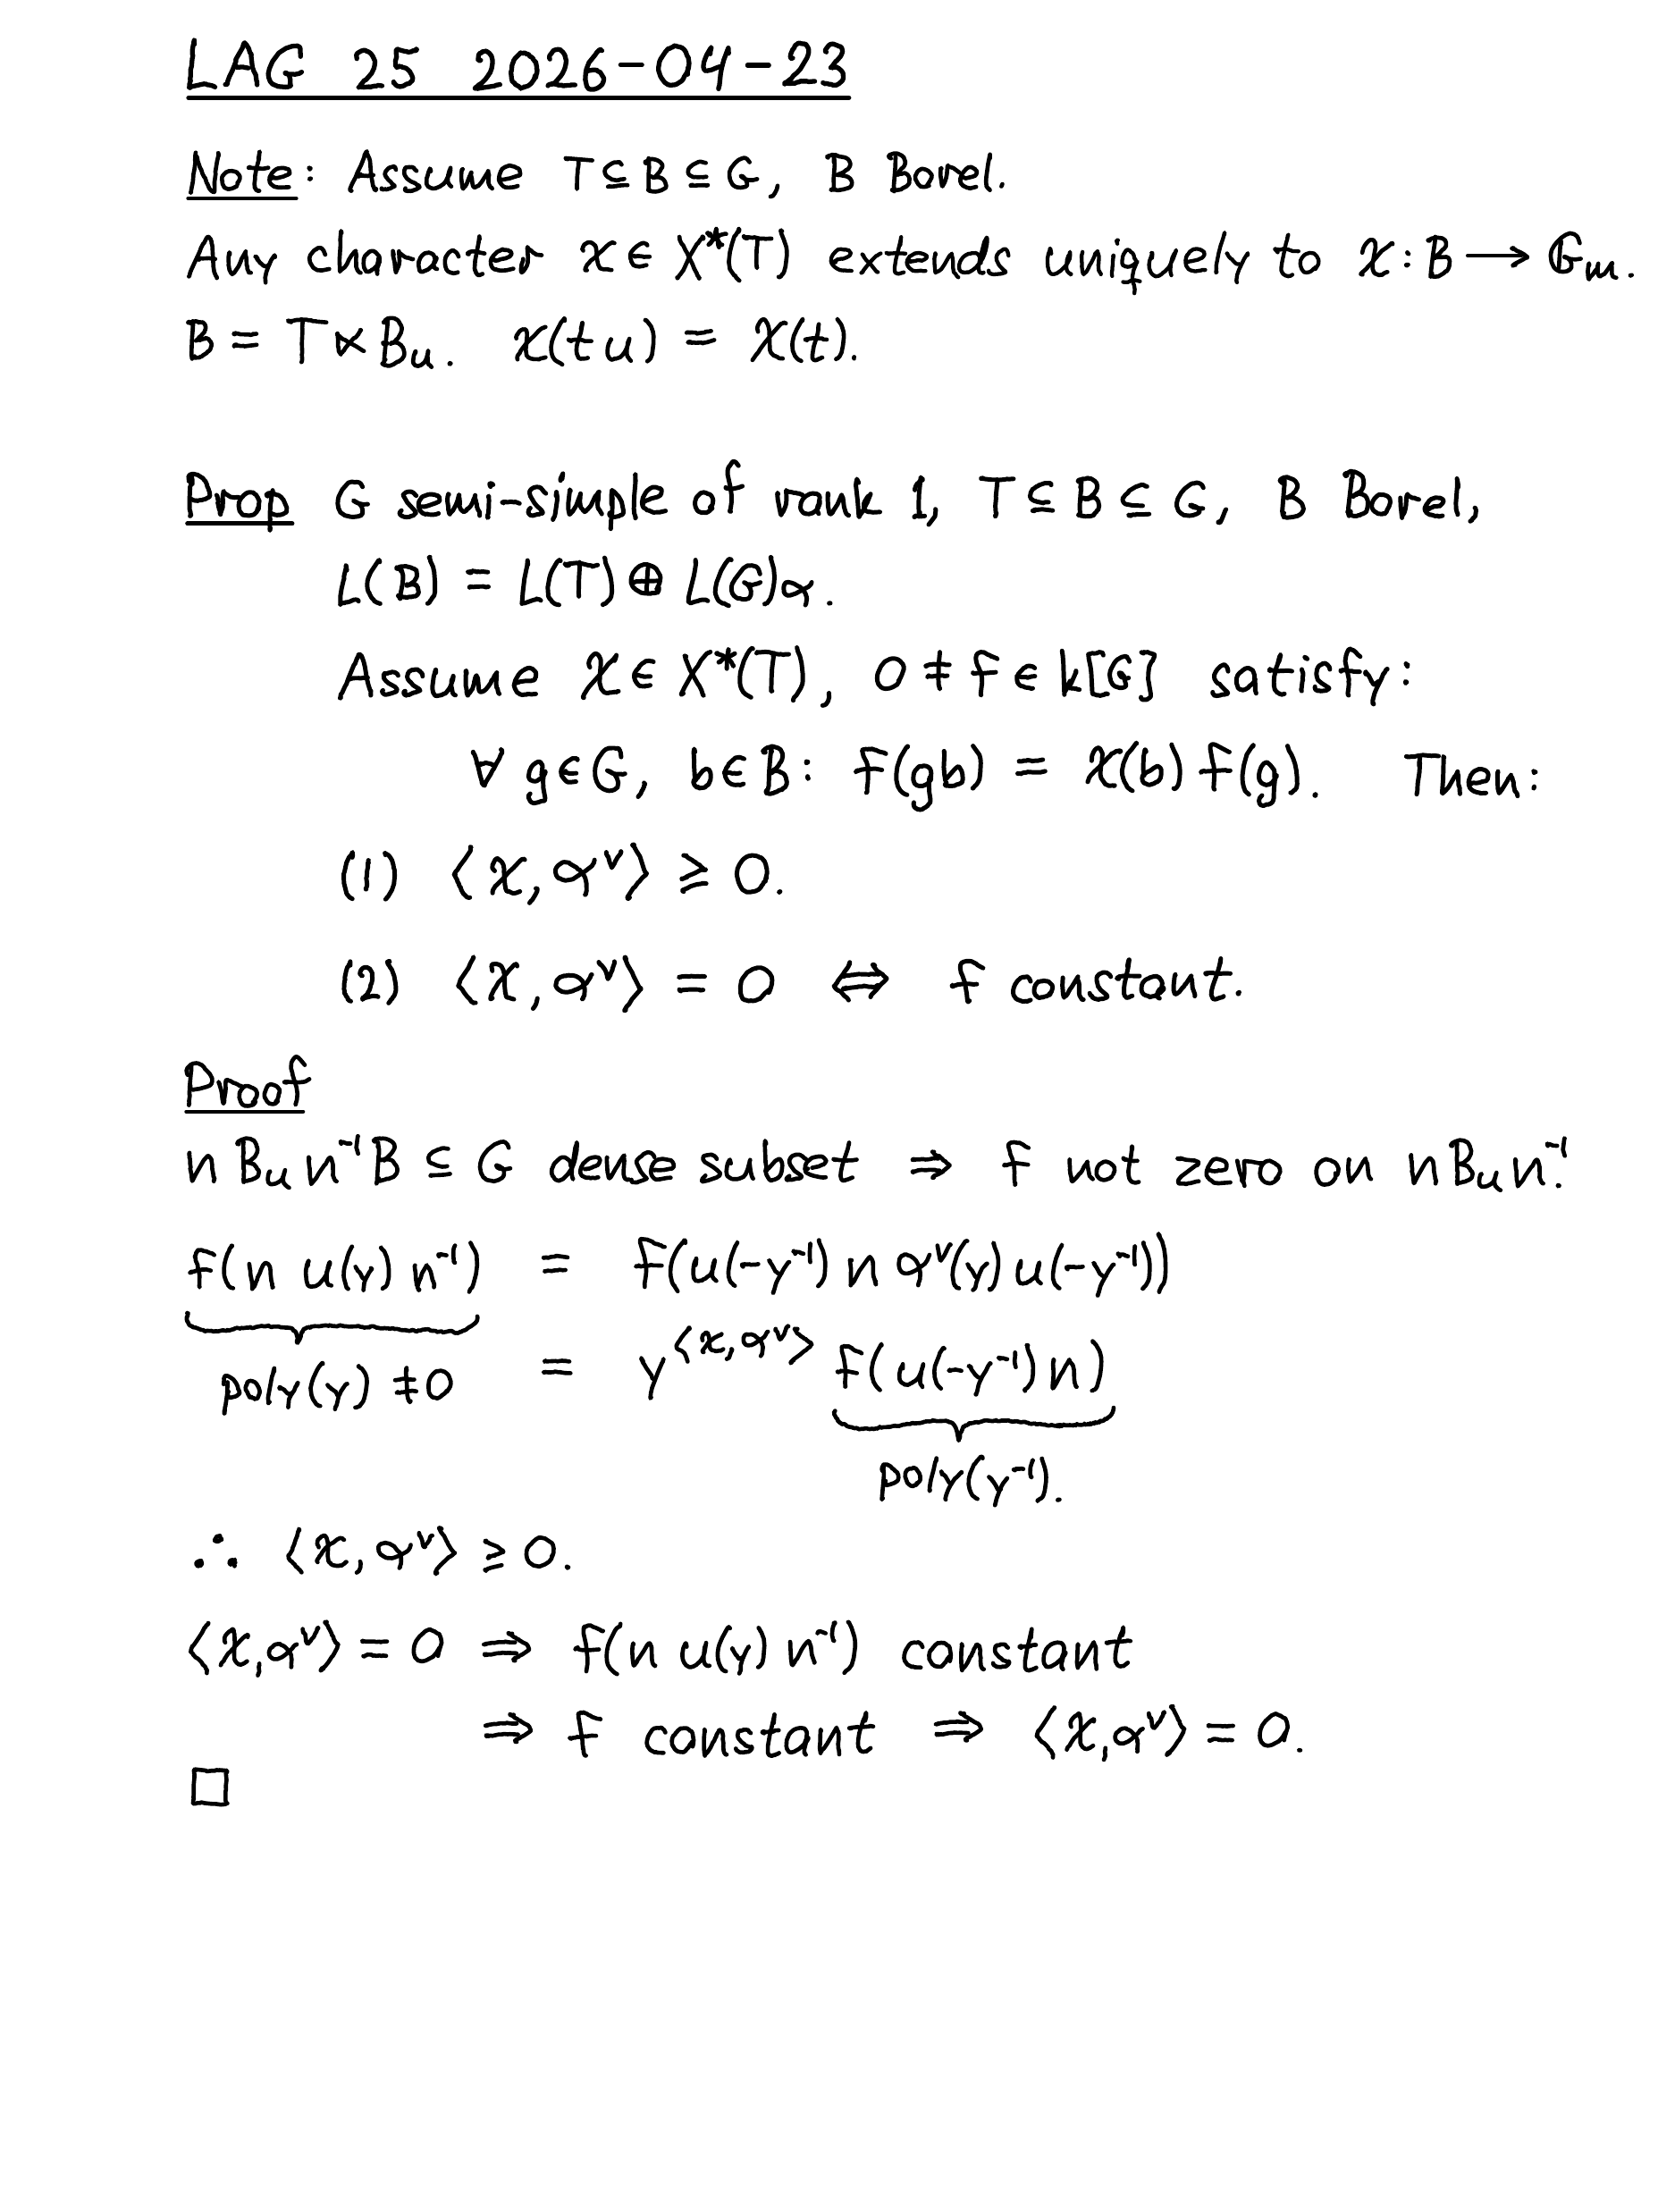 LAG 25 2026-04-23
Note: Assume T ⊆ B ⊆ G, B Borel.
Any character χ ∈ X*(T) extends uniquely to χ: B → 𝔾m.
B = T ⋉ Bu. χ(tu) = χ(t).
Prop G semi-simple of rank 1, T ⊆ B ⊆ G, B Borel,
L(B) = L(T) ⊕ L(G)α.
Assume χ ∈ X*(T), 0 ≠ f ∈ k[G] satisfy:
∀ g ∈ G, b ∈ B: f(gb) = χ(b) f(g). Then:
(1) ⟨χ, α^∨⟩ ≥ 0.
(2) ⟨χ, α^∨⟩ = 0 ⇔ f constant.
Proof
n Bu n⁻¹ B ⊆ G dense subset ⇒ f not zero on n Bu n⁻¹.
f(n u(y) n⁻¹) = f(u(-y⁻¹) n α^∨(y) u(-y⁻¹))
poly(y) ≠ 0 = y^⟨χ, α^∨⟩ f(u(-y⁻¹) n)
poly(y⁻¹).
∴ ⟨χ, α^∨⟩ ≥ 0.
⟨χ, α^∨⟩ = 0 ⇒ f(n u(y) n⁻¹) constant
⇒ f constant ⇒ ⟨χ, α^∨⟩ = 0.
□